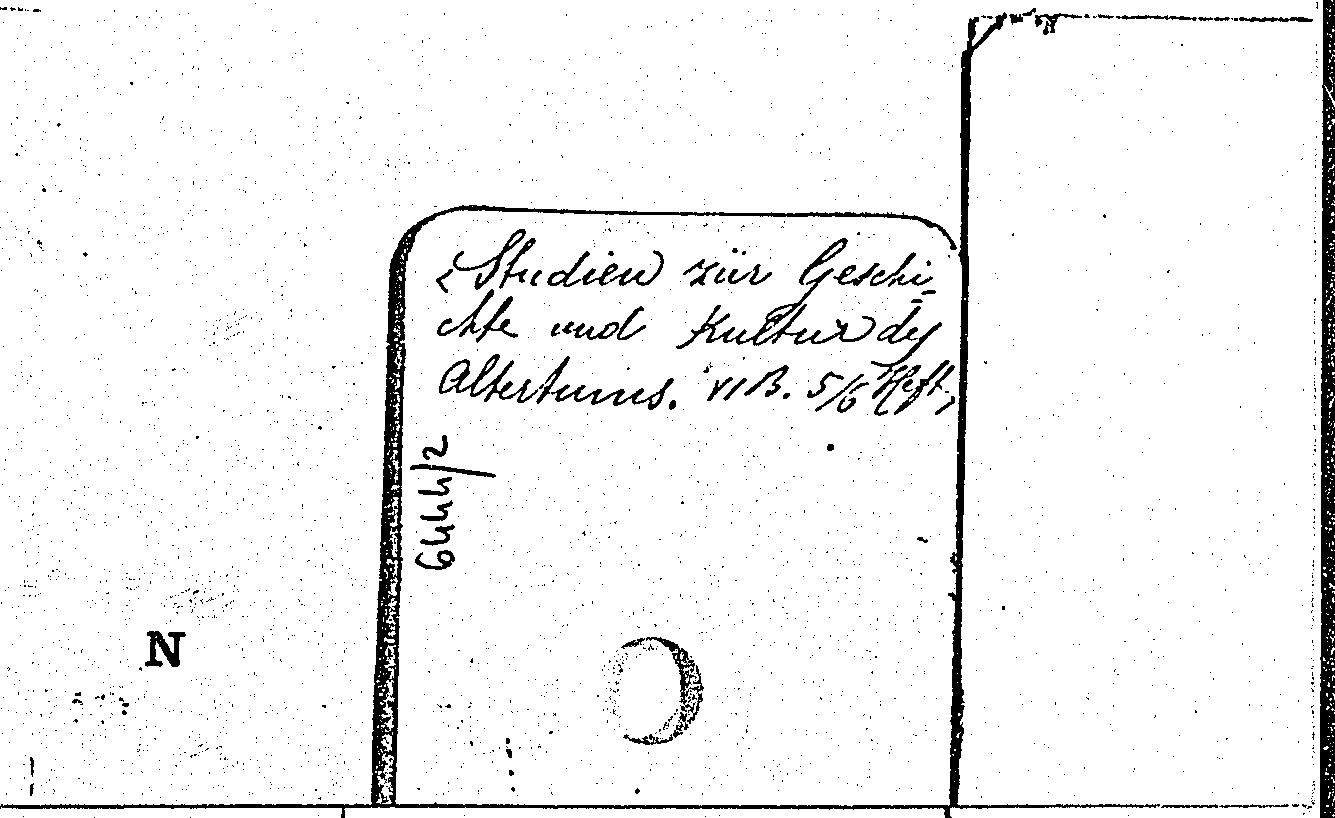 <Studien zür Geschi=
chte und Kultur des
Altertums. VI B. 5/6 Heft>
6444/2
N